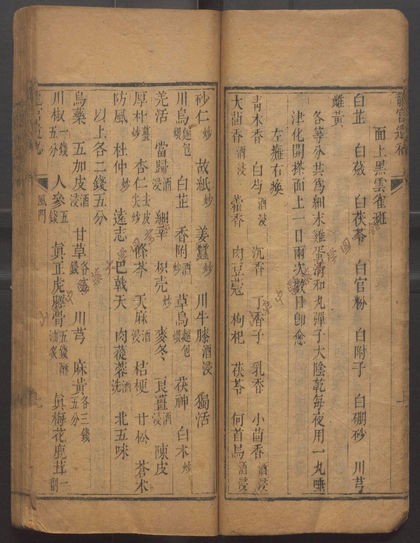 面上黑雲雀斑
白芷 白蘞 白茯苓 白官粉 白附子 白硼砂 川芎
雌黃
各等分共爲細末雞蛋清和丸彈子大陰乾每夜用一丸唾
津化開搽面上一日兩次數日卽愈
左癱右瘓
青木香 白芍酒浸 沉香 丁香子 乳香 小茴香酒浸
大茴香酒浸 藿香 肉豆蔻 枸杞 茯苓 何首烏酒浸
砂仁炒 故紙炒 姜蠶炒 川牛膝酒浸 獨活
川烏麵包煨 白芷 香附炒 草烏麵包煨 茯神 白朮炒
羌活 當歸酒浸 細辛 枳壳炒 麥冬 良薑酒炒 陳皮
厚朴薑炒 杏仁去皮尖炒 條芩 天麻酒浸 桔梗 甘松 蒼朮
防風 杜仲炒 遠志 巴戟天 肉蓯蓉酒洗 北五味
以上各二錢五分
烏藥 五加皮酒浸 甘草各錢 川芎 麻黃各三錢五分
川椒一錢五分 人參五錢 眞正虎脛骨五錢酥炙 眞梅花鹿茸一
風門